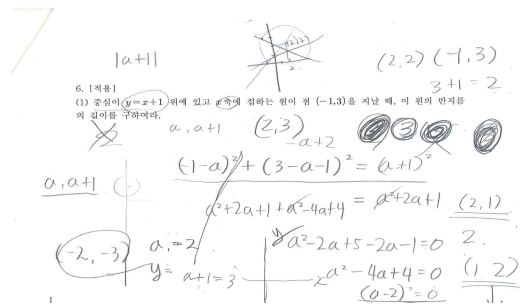 |a+1|
(2,2)
(2,2) (-1,3)
3+1=2
6. [적용]
(1) 중심이 y=x+1 위에 있고 x축에 접하는 원이 점 (-1,3)을 지날 때, 이 원의 반지름
의 길이를 구하여라.
a, a+1 (2,3)
-a+2
3
(-1-a)² + (3-a-1)² = (a+1)²
a, a+1
a²+2a+1+a²-4a+4 = a²+2a+1 (2,1)
(-2,-3) a,=2 y a²-2a+5-2a-1=0 2.
y= a+1=3 x a²-4a+4=0 (1,2)
(a-2)²=0